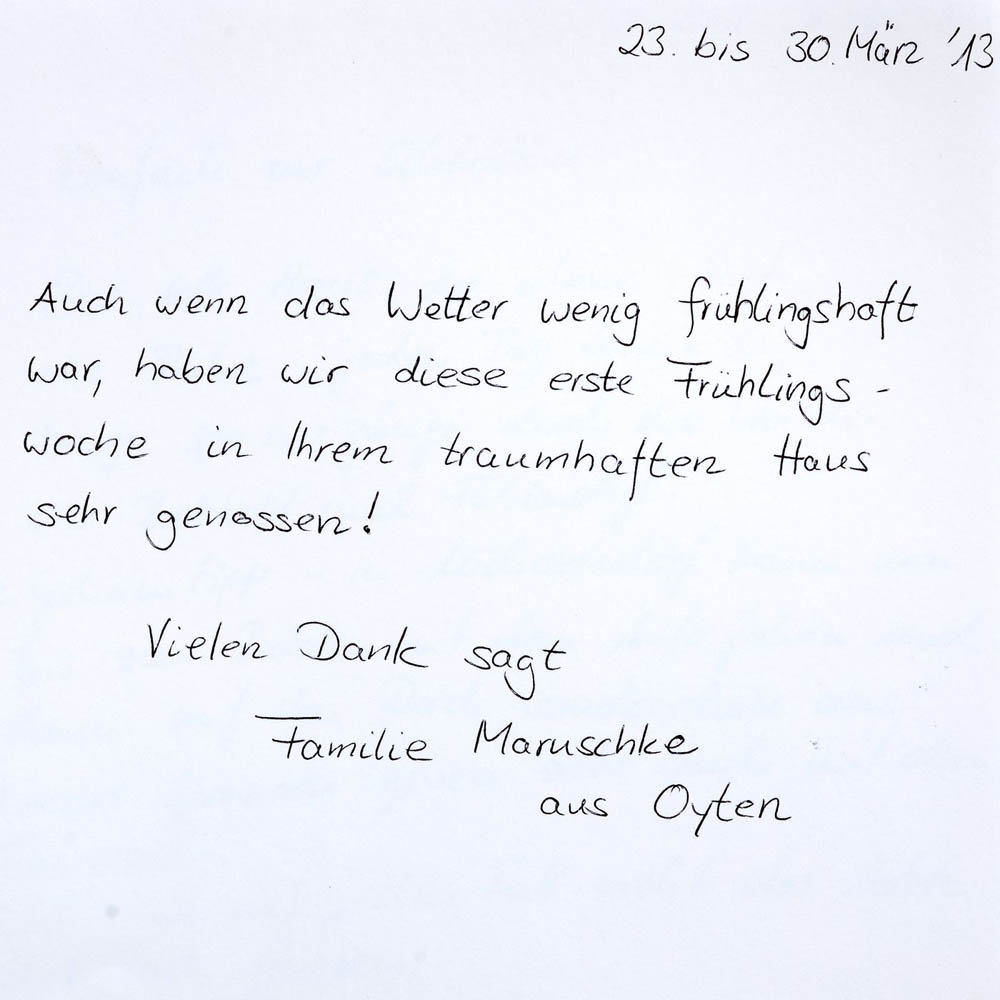 23. bis 30. März '13
Auch wenn das Wetter wenig frühlingshaft
war, haben wir diese erste Frühlings-
woche in Ihrem traumhaften Haus
sehr genossen!
Vielen Dank sagt
Familie Maruschke
aus Oyten